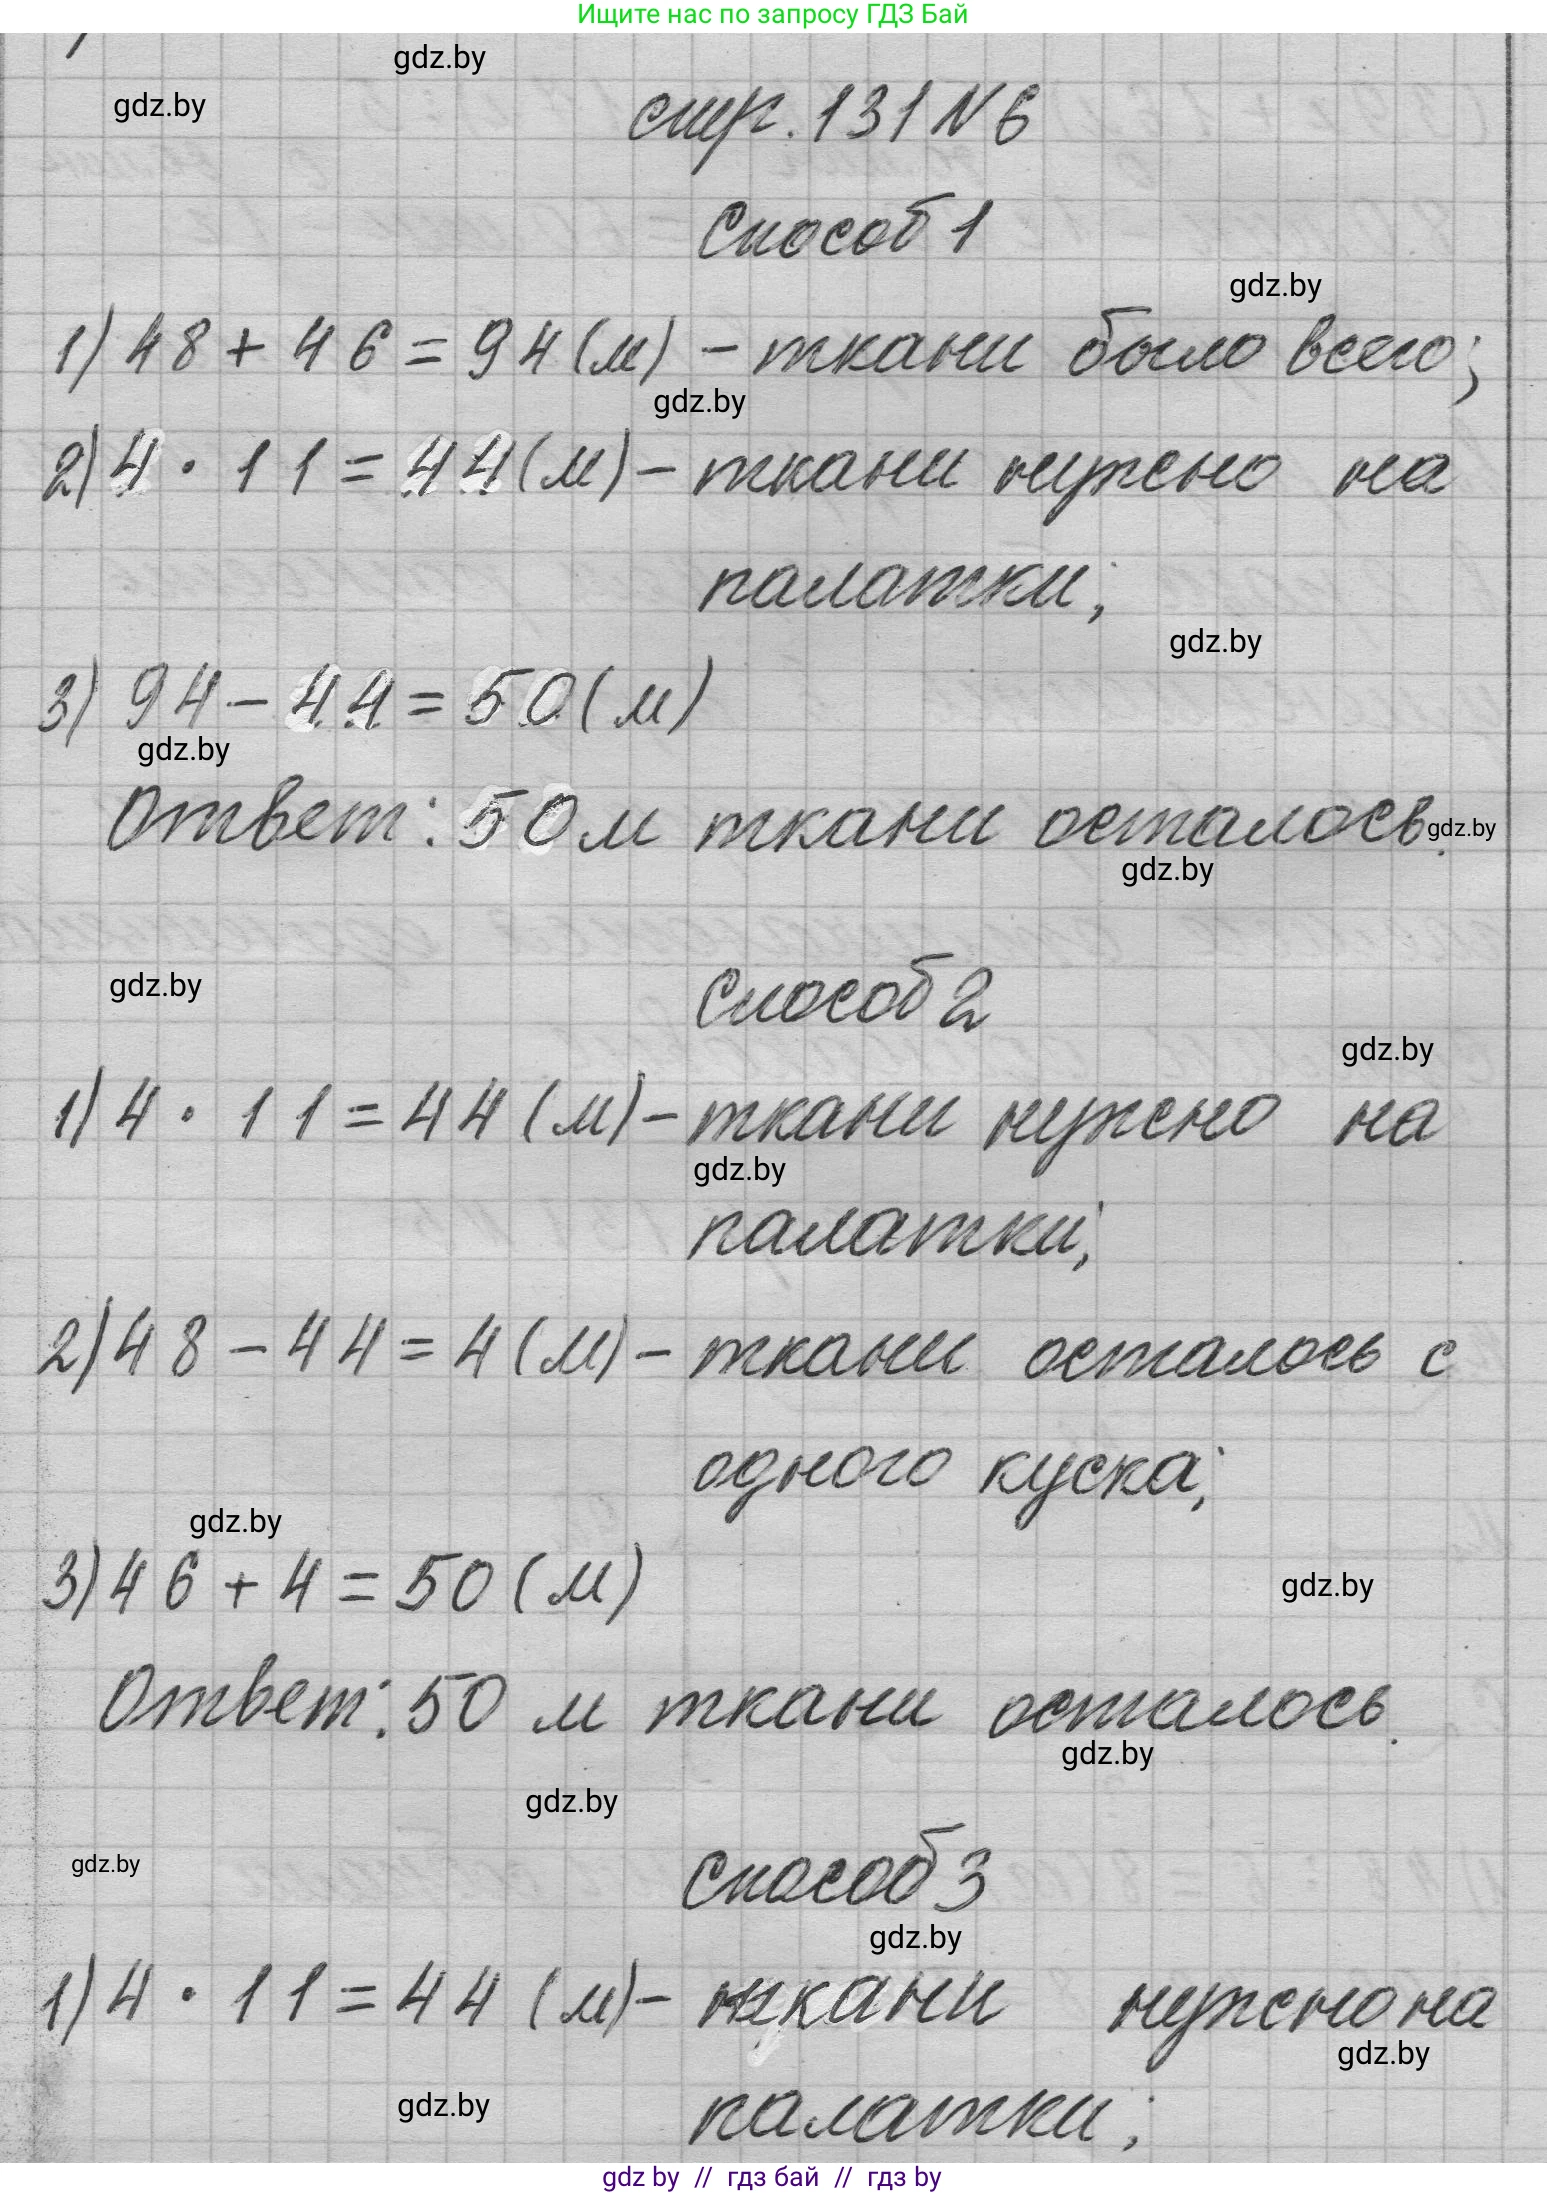 Ищите нас по запросу ГДЗ Бай
gdz.by
gdz.by
стр. 131 N 6
Способ 1
gdz.by
1) 48 + 46 = 94 (м) - ткани было всего;
gdz.by
2) 4 · 11 = 44 (м) - ткани нужно на
палатки;
gdz.by
3) 94 - 44 = 50 (м)
gdz.by
Ответ: 50 м ткани осталось.
gdz.by
gdz.by
Способ 2
gdz.by
gdz.by
1) 4 · 11 = 44 (м) - ткани нужно на
gdz.by
палатки;
2) 48 - 44 = 4 (м) - ткани осталось с
одного куска;
gdz.by
3) 46 + 4 = 50 (м)
gdz.by
Ответ: 50 м ткани осталось.
gdz.by
gdz.by
Способ 3
gdz.by
gdz.by
1) 4 · 11 = 44 (м) - ткани нужно на
gdz.by
gdz.by
палатки;
gdz by // гдз бай // гдз by